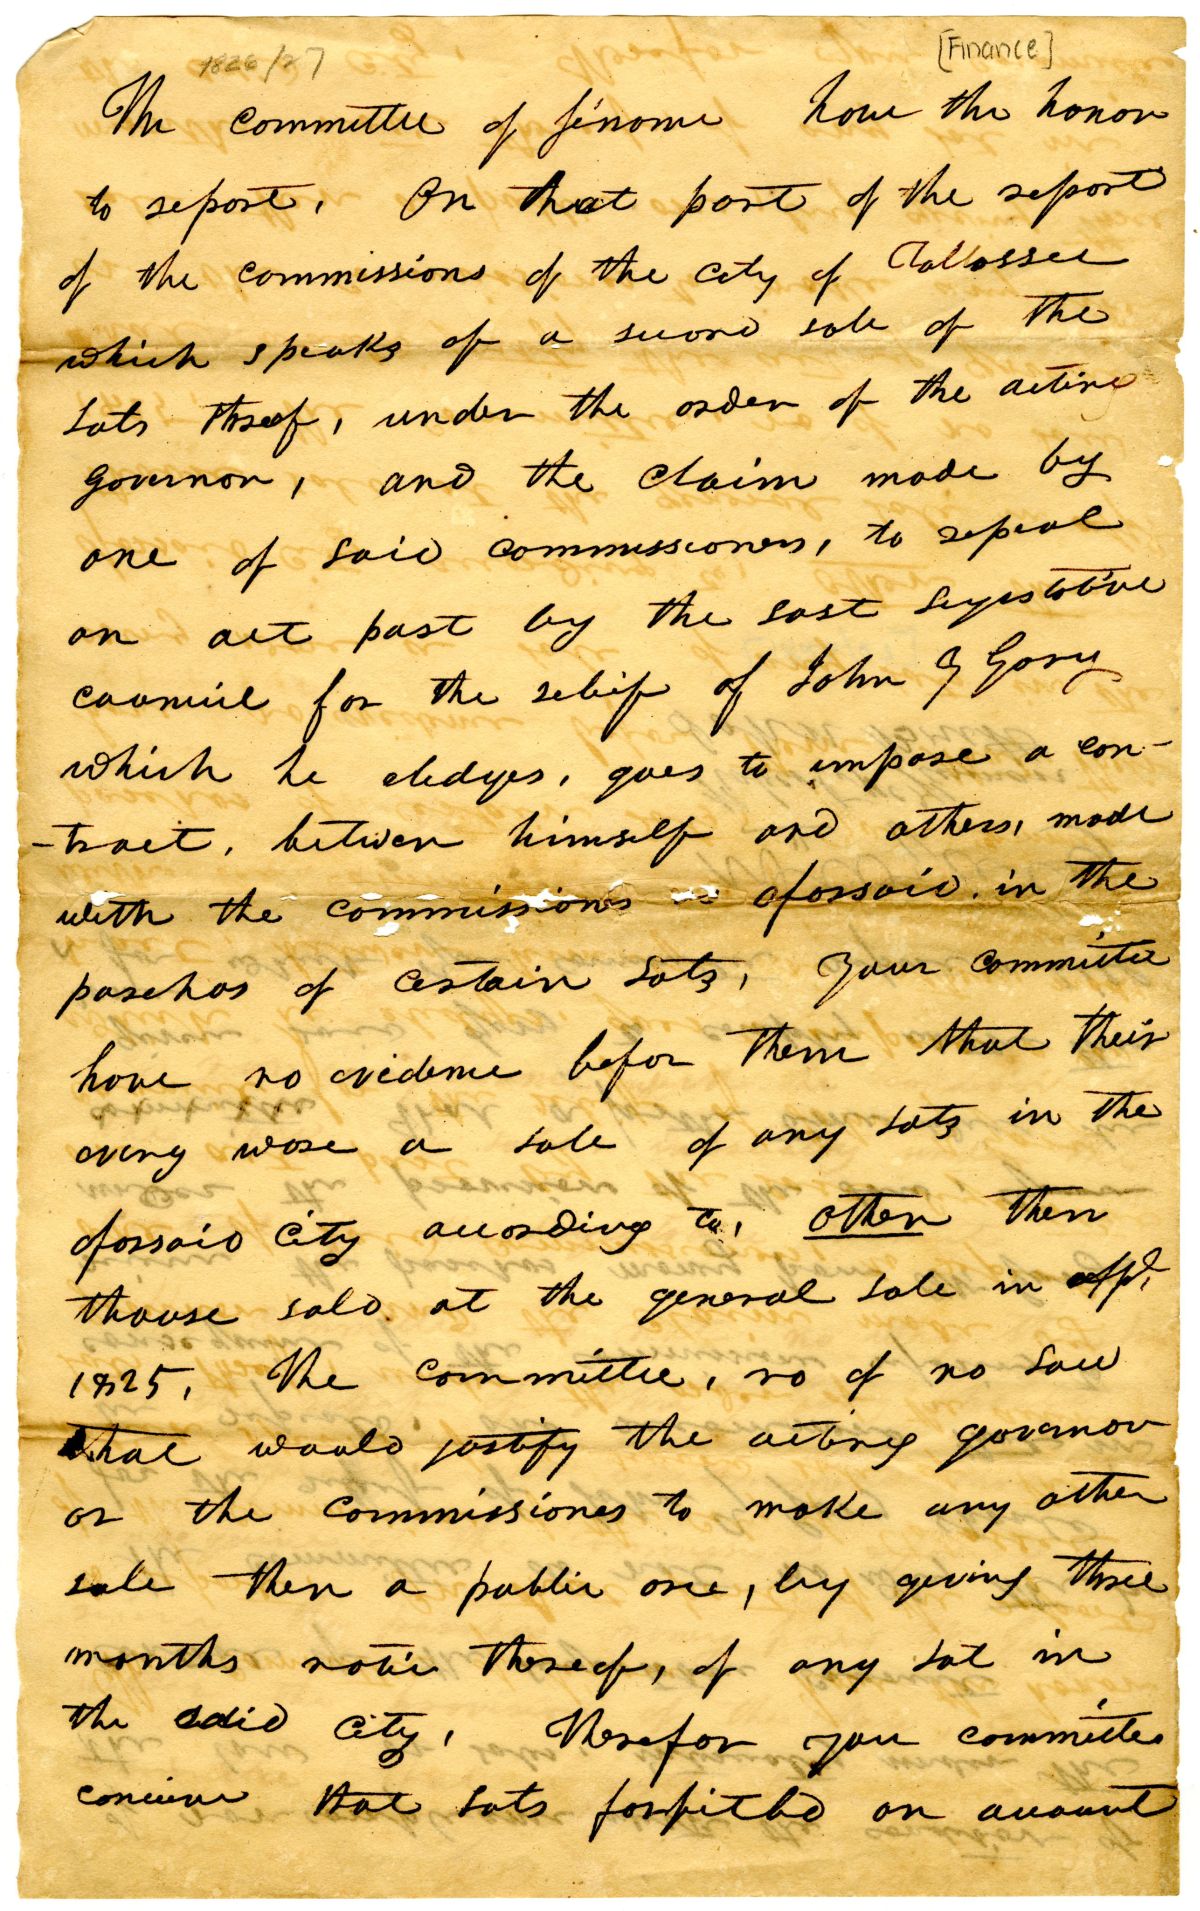 1826/27
[Finance]
The committee of finance have the honor
to report, On that part of the report
of the commissions of the city of Tallassee
which speaks of a second sale of the
Lots threof, under the order of the acting
governor, and the claim made by
one of said commissioners, to repeal
an act past by the last Legislative
council for the relief of John Y Gary
which he aledges, goes to impose a con-
-tract, between himself and others, made
with the commissions aforsaid. in the
parchas of certain Lots, Your committee
have no evidence befor them that their
every ware a sale of any Lots in the
aforsaid city according to, other then
thouse sold at the general sale in apl.
1825. The committee, no of no Law
that would justify the acting governor
or the commissiones to make any other
sale then a public one, by giving three
months notic thereof, of any Lot in
the said city, Therefor you committee
conceive that Lots forfitbd on account